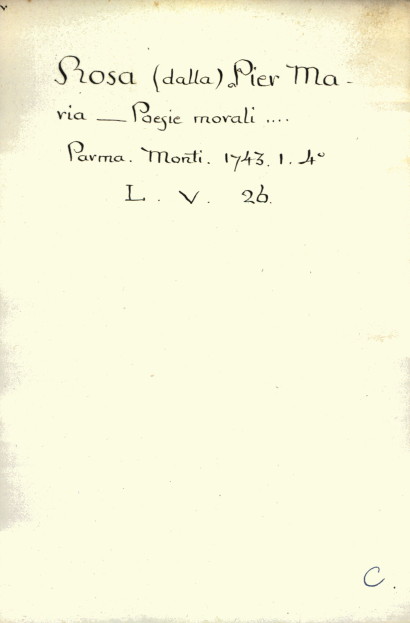 Rosa (dalla) Pier Ma-
ria — Poesie morali ....
Parma. Monti. 1743. 1. 4°
L. V. 26.
C.